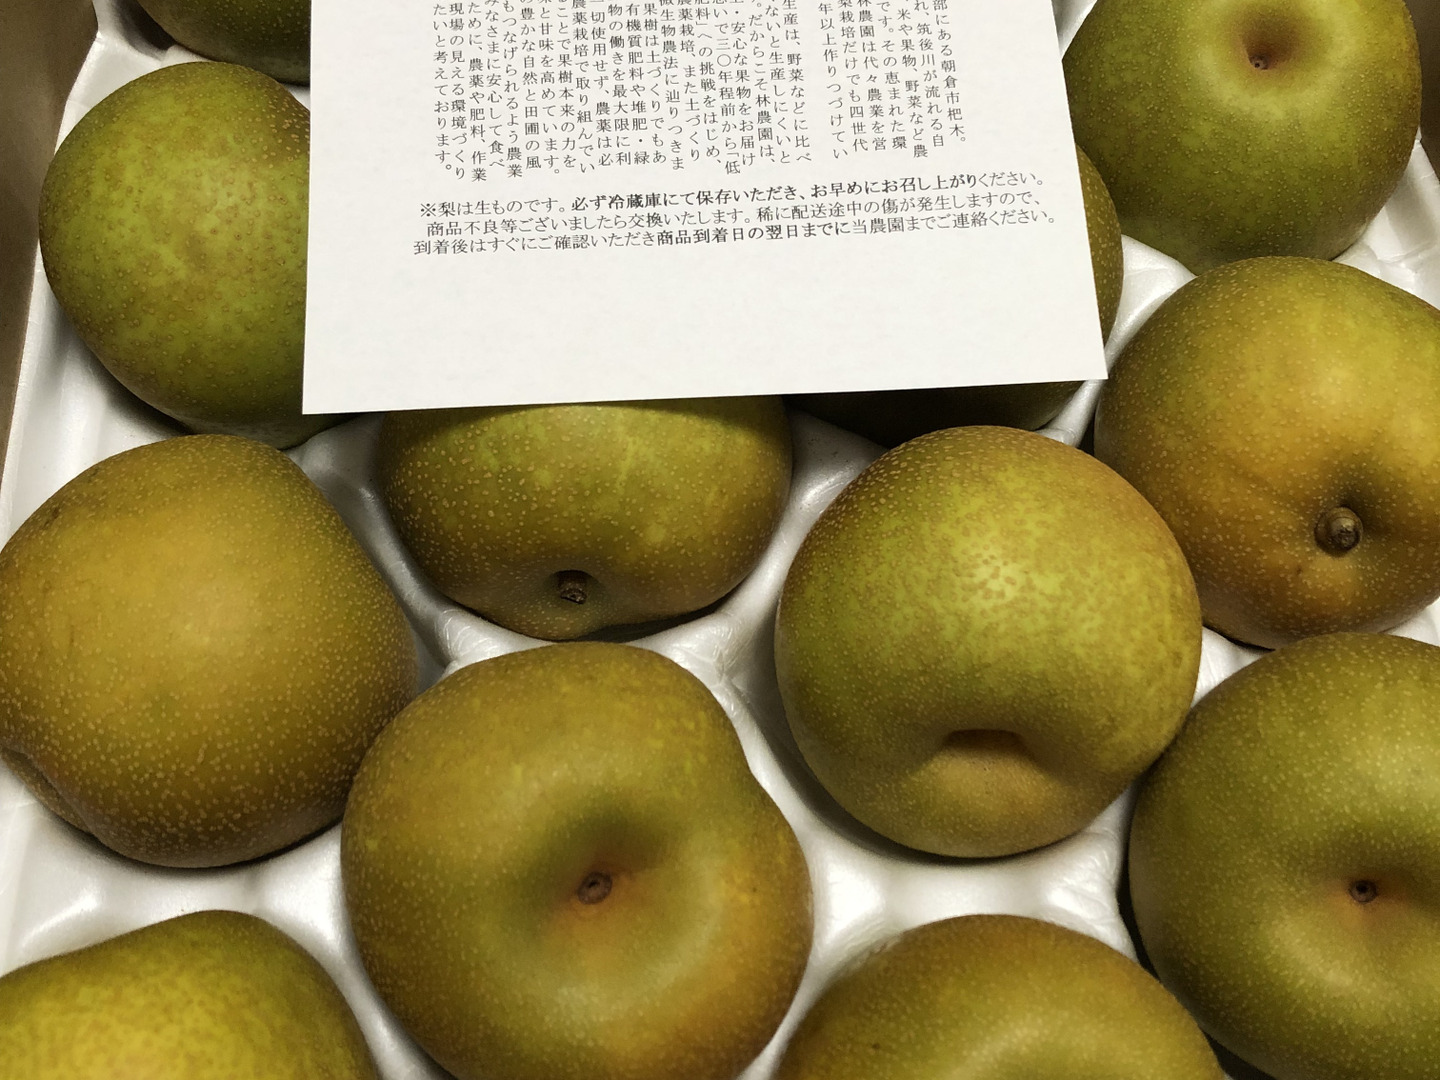 部にある朝倉市杷木。
れ、筑後川が流れる自
、米や果物、野菜など農
です。その恵まれた環
林農園は代々農業を営
梨栽培だけでも四世代
年以上作りつづけてい
生産は、野菜などに比べ
ないと生産しにくいと
。だからこそ林農園は、
・安心な果物をお届け
思いで三〇年程前から「低
肥料」への挑戦をはじめ、
農薬栽培、また土づくり
微生物農法に辿りつきま
果樹は土づくりでもあ
有機質肥料や堆肥・緑
物の働きを最大限に利
一切使用せず、農薬は必
農薬栽培で取り組んでい
ることで果樹本来の力を
味と甘味を高めています。
の豊かな自然と田圃の風
もつなげられるよう農業
みなさまに安心して食べ
ために、農薬や肥料、作業
現場の見える環境づくり
たいと考えております。
※梨は生ものです。必ず冷蔵庫にて保存いただき、お早めにお召し上がりください。
商品不良等ございましたら交換いたします。稀に配送途中の傷が発生しますので、
到着後はすぐにご確認いただき商品到着日の翌日までに当農園までご連絡ください。